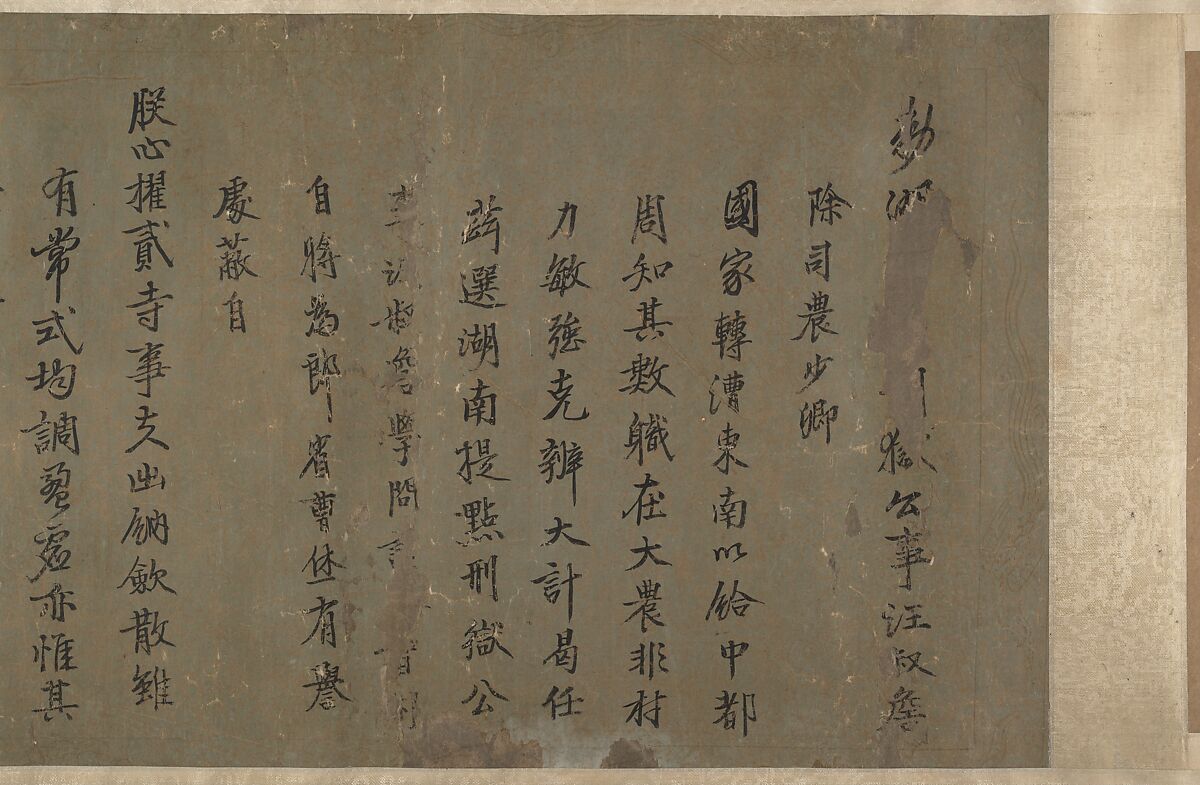 勑湖刂獄公事汪叔詹
除司農少卿
國家轉漕東南以給中都
周知其數職在大農非材
力敏強克辨大計曷任
茲選湖南提點刑獄公
事汪叔詹學問
自將為郎省曹休有譽
處蔽自
朕心擢貳寺事夫出納斂散雖
有常式均調盈虛亦惟其